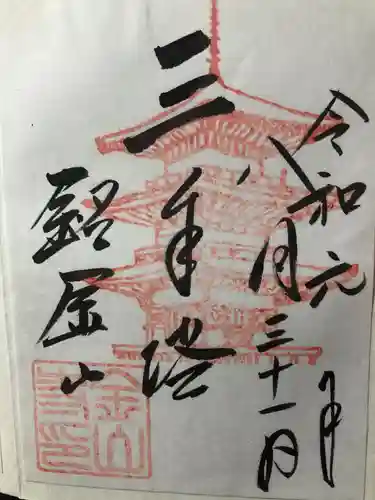 令和元年
八月三十一日
三重塔
銘金山